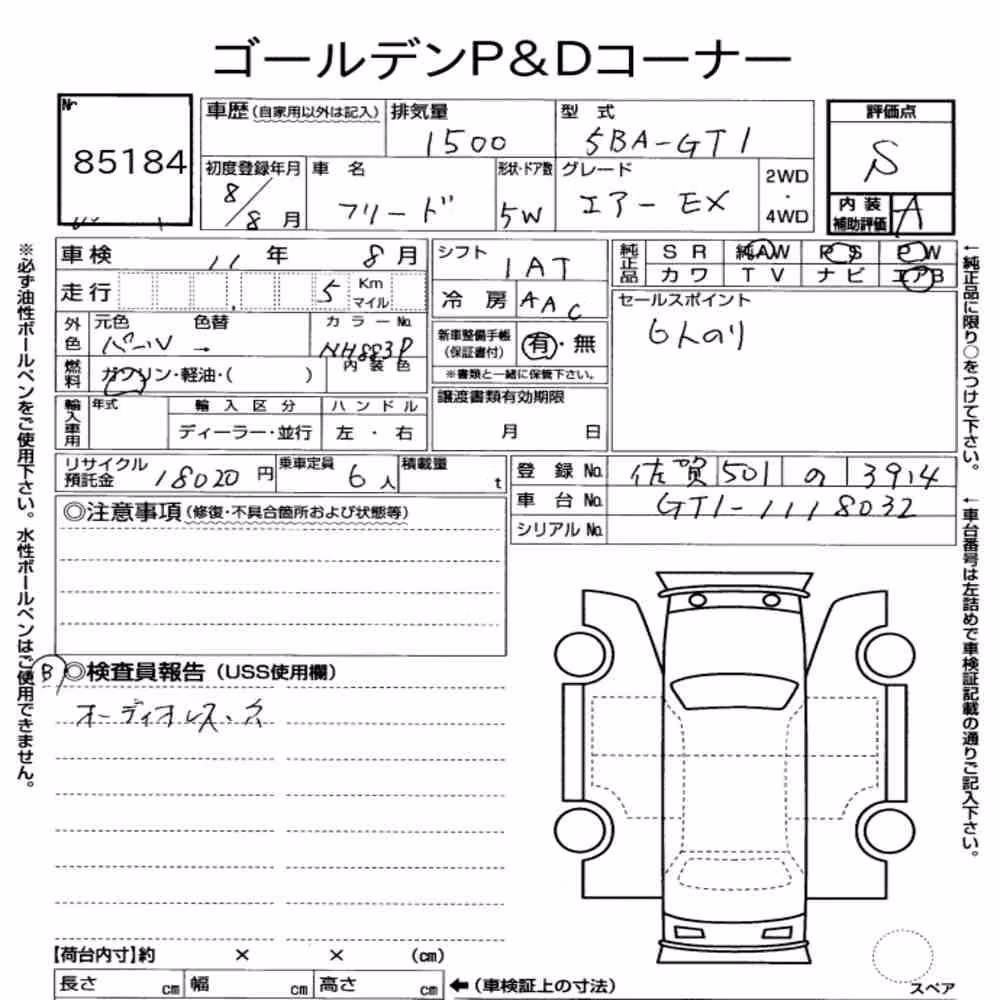 ゴールデンP&Dコーナー
№
85184
車歴(自家用以外は記入)
排気量
1500
型 式
5BA-GT1
評価点
S
初度登録年月
8/8月
車 名
フリード
形状・ドア数
5W
グレード
エアー EX
2WD
・
4WD
内 装
補助評価
A
車検 11 年 8 月
シフト
1AT
純正品
S R 純AW P S P W
カワ T V ナビ エアB
走行 5 Km
マイル
冷 房 AAC
セールスポイント
6人のり
外色
元色 色替
パール →
カラー No.
NH883P
新車整備手帳
(保証書付)
有・無
※書類と一緒に保管下さい。
燃料
ガソリン・軽油・( )
内 装 色
輸入車用
年式
輸 入 区 分
ハ ン ド ル
ディーラー・並行
左 ・ 右
譲渡書類有効期限
月 日
リサイクル
預託金 18020 円
乗車定員 6 人
積載量 t
登 録 No. 佐賀 501 の 3914
車 台 No. GT1-1118032
シリアル No.
◎注意事項(修復・不具合箇所および状態等)
B
◎検査員報告(USS使用欄)
オーディオレス・
【荷台内寸】約 × × (cm)
長さ cm 幅 cm 高さ cm
←(車検証上の寸法)
スペア
※必ず油性ボールペンをご使用下さい。水性ボールペンはご使用できません。
←純正品に限り○をつけて下さい。
←車台番号は左詰めで車検証記載の通りご記入下さい。